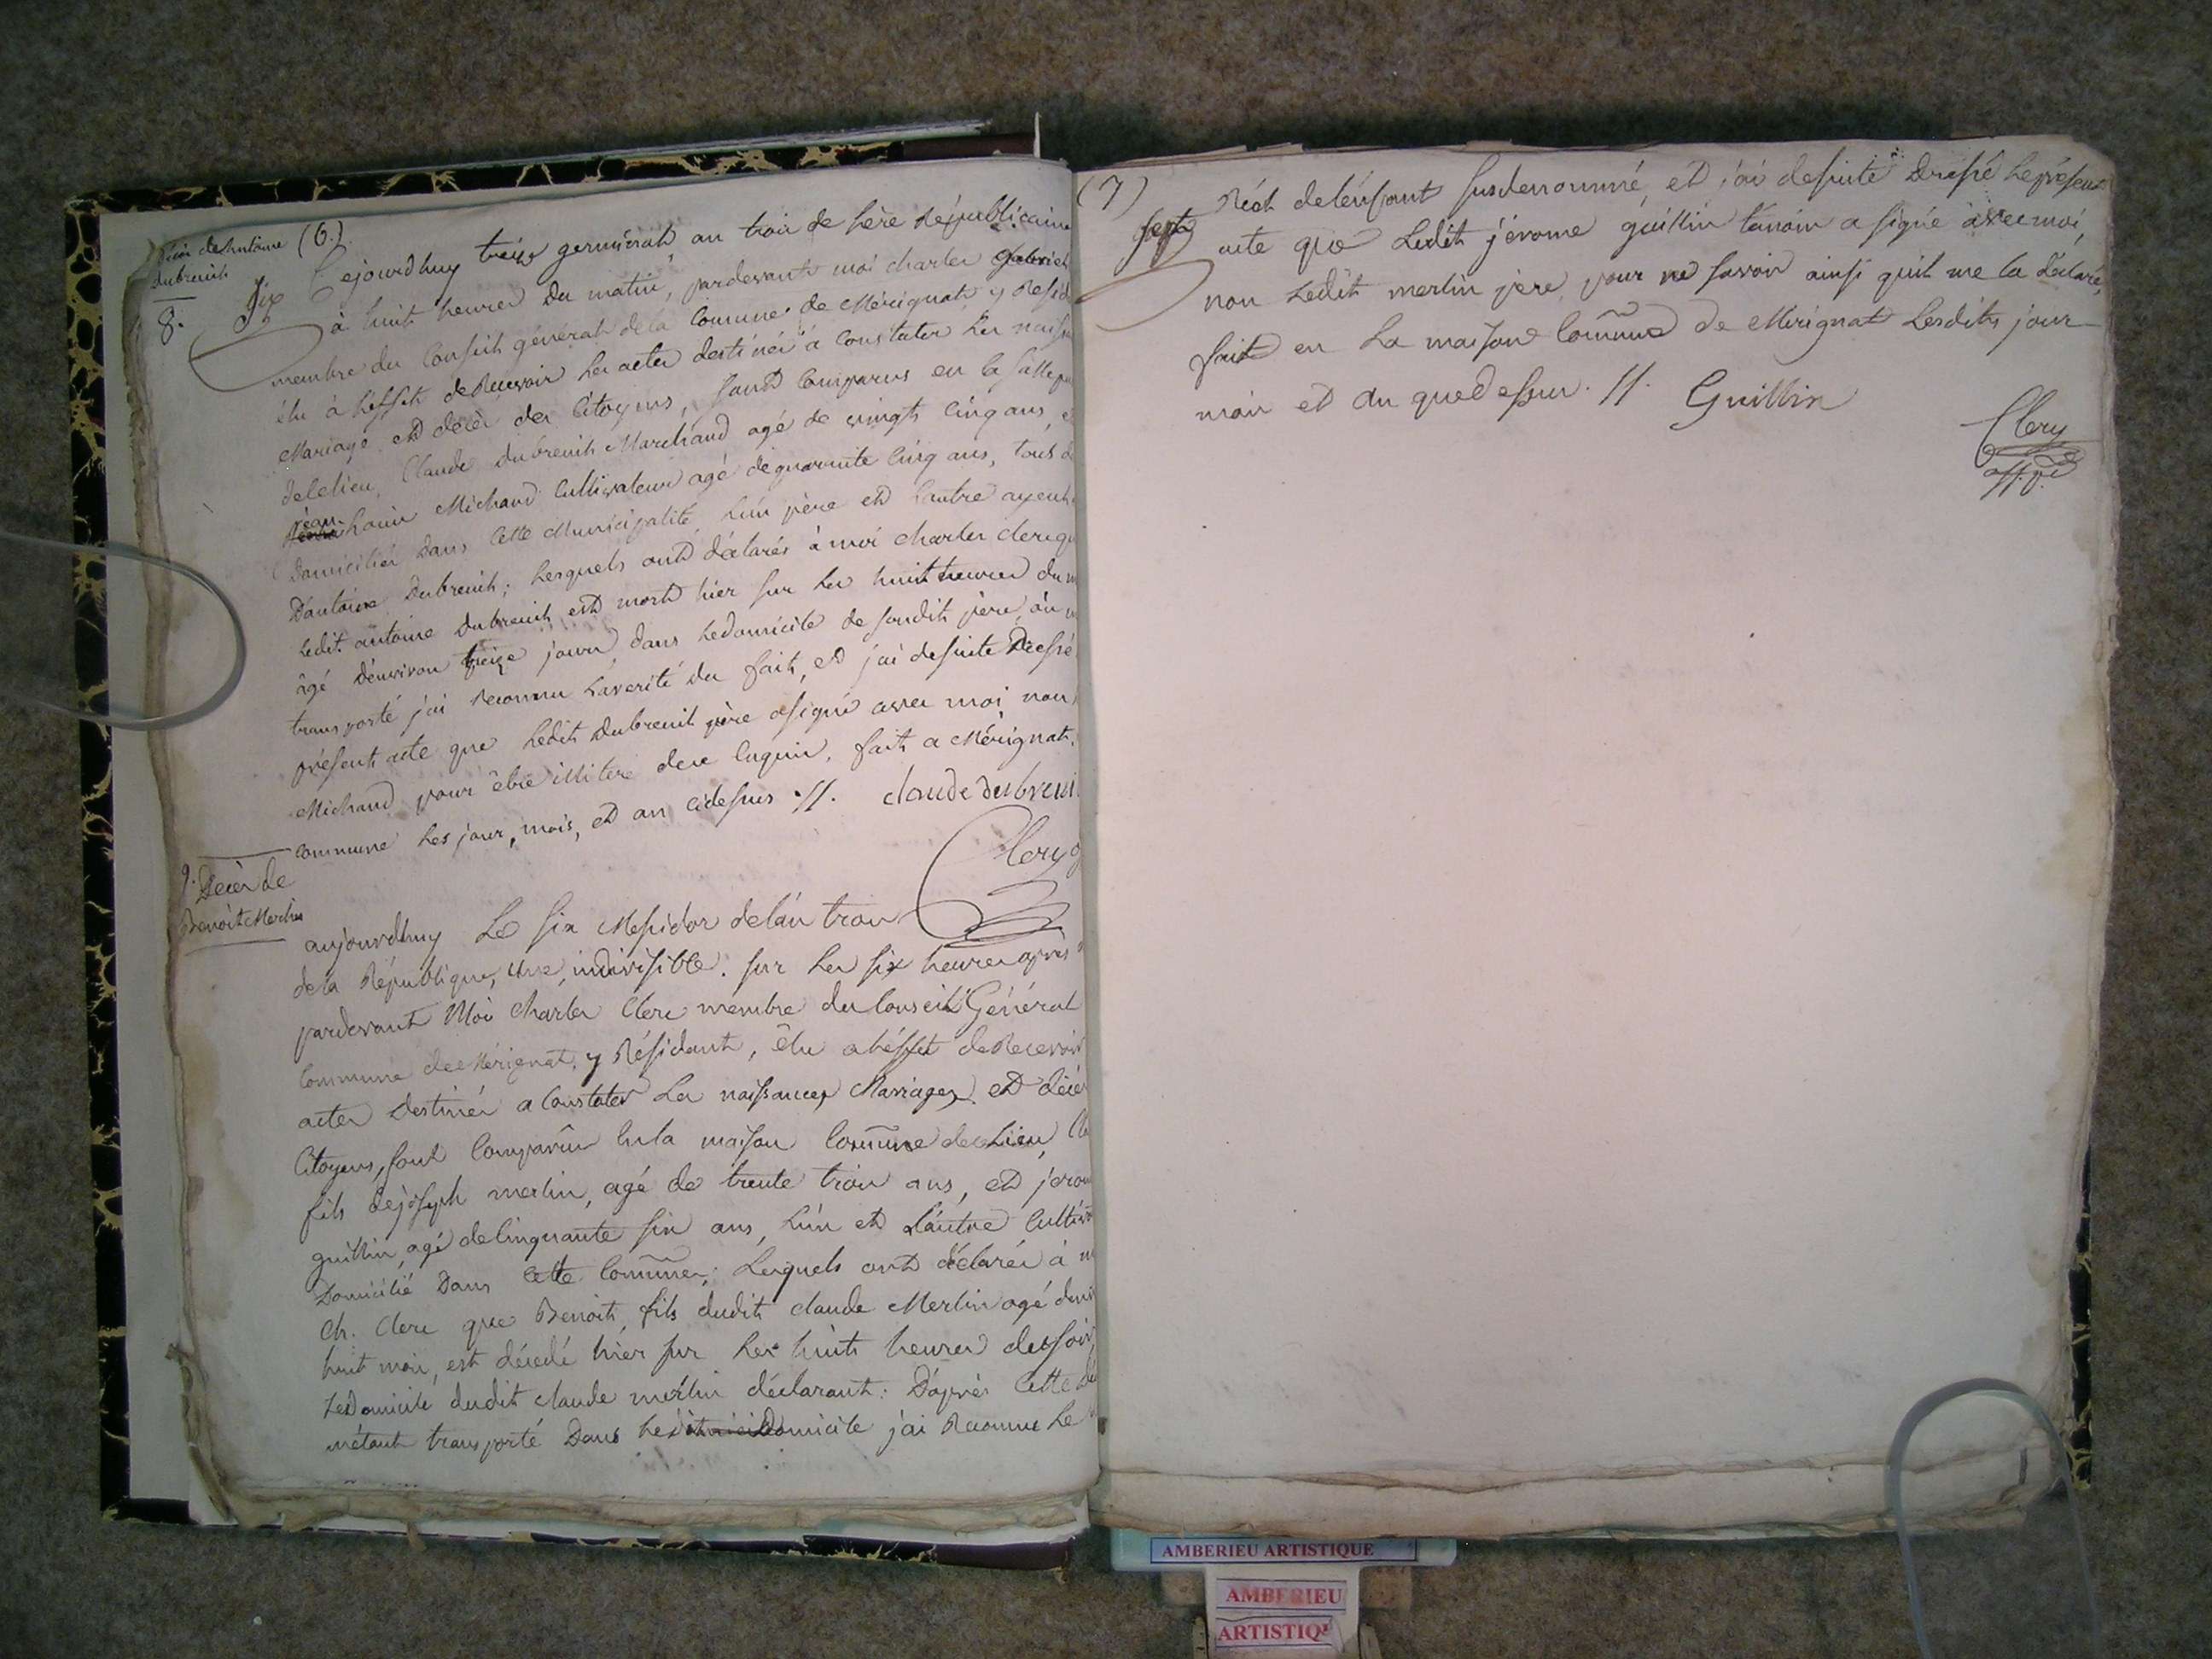 (6.)
décès de Antoine
dubreuil
8.
Six
Cejourdhuy treize germinal an trois de l'ère républicaine
à huit heures du matin, pardevant moi charles gabriel
membre du Conseil général de la Comune de Mérignat y Resid
élu à l'effet de Recevoir les actes destinés à constater les naiss
Mariage et décès des Citoyens, sont Comparus en la salle pu
de ce lieu, Claude dubreuil Marchand agé de vingt cinq ans, et
jean louis Michaud Cultivateur agé de quarante cinq ans, tous d
Domiciliés dans Cette Municipalité, l'un père et l'autre ayeul
D'antoine Dubreuil; lesquels ont déclarés à moi charles clerc qu
ledit antoine Dubreuil est mort hier sur les huit heures du m
âgé d'environ treize jours, dans le domicile de sondit père, où m
transporté j'ai reconnu la verité du fait, et j'ai desuite Dressé
présent acte que ledit Dubreuil père a signé avec moi, non
Michaud pour être illiteré de ce enquis, fait a Mérignat,
commune les jour, mois, et an cidessus .//. claude dubreuil
Clerc
9. Décès de
Benoit Merlin
aujourdhuy Le six Messidor de l'an trois
de la République, Une, indivisible. sur les six heures après
pardevant Moi Charles Clerc membre du Conseil Général
Commune de Mérignat, y Résidant, élu a l'effet de Recevoir
actes Destinés a Constater les naissances, Mariages, et décès
Citoyens, sont Comparûs en la maison Comune de ce Lieu, Cl
fils de joseph merlin, agé de trente trois ans, et jerom
guillin, agé de Cinquante six ans, l'un et l'autre Cultiv
Domicilié dans Cette Comune; lesquels ont déclarés à m
Ch. Clerc que Benoit, fils dudit claude Merlin agé d'env
huit mois, est décedé hier sur les huits heures du soir,
le domicile dudit claude merlin déclarant: D'après Cette dé
m'étant transporté Dans ledit domicile j'ai Reconnu le
(7)
Sept
décès de l'enfant susdenommé, et j'ai desuite Dressé le présent
acte que Ledit jérome guillin témoin a signé avec moi,
non ledit merlin père, pour ne savoir ainsi qu'il me la déclaré,
fait en la maison Comune de Mérignat lesdits jour
mois et an que dessus .//. Guillin
Clerc
off. p.
AMBERIEU ARTISTIQUE
AMBERIEU
ARTISTIQ